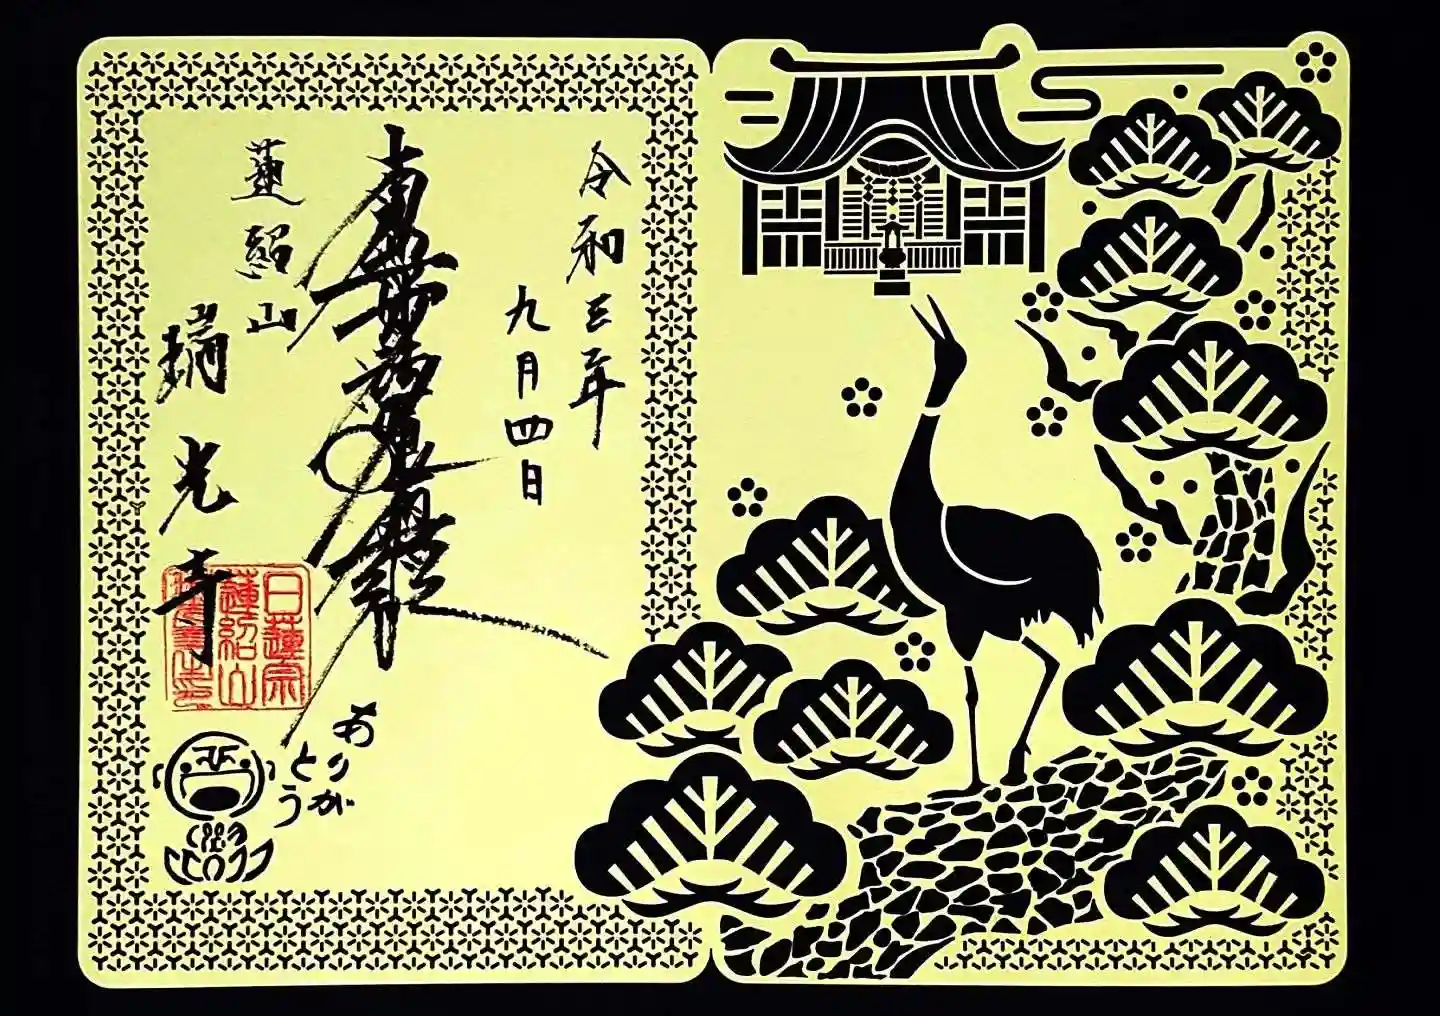 令和三年
九月四日
南無妙法蓮華経
蓮紹山
瑞光寺
日蓮宗
蓮紹山
ありが
とう